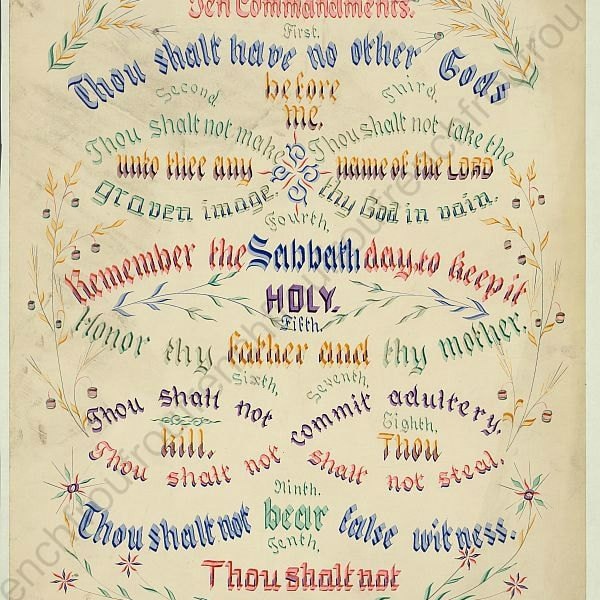 Ten Commandments.
First.
Thou shalt have no other Gods
before
me.
Second.
Thou shalt not make
unto thee any
graven image.
Third.
Thou shalt not take the
name of the LORD
thy God in vain.
Fourth.
Remember the Sabbath day, to keep it
HOLY.
Fifth.
Honor thy father and thy mother.
Sixth.
Thou shalt not
kill.
Seventh.
Thou shalt not commit adultery.
Eighth.
Thou
shalt not steal.
Ninth.
Thou shalt not bear false witness.
Tenth.
Thou shalt not